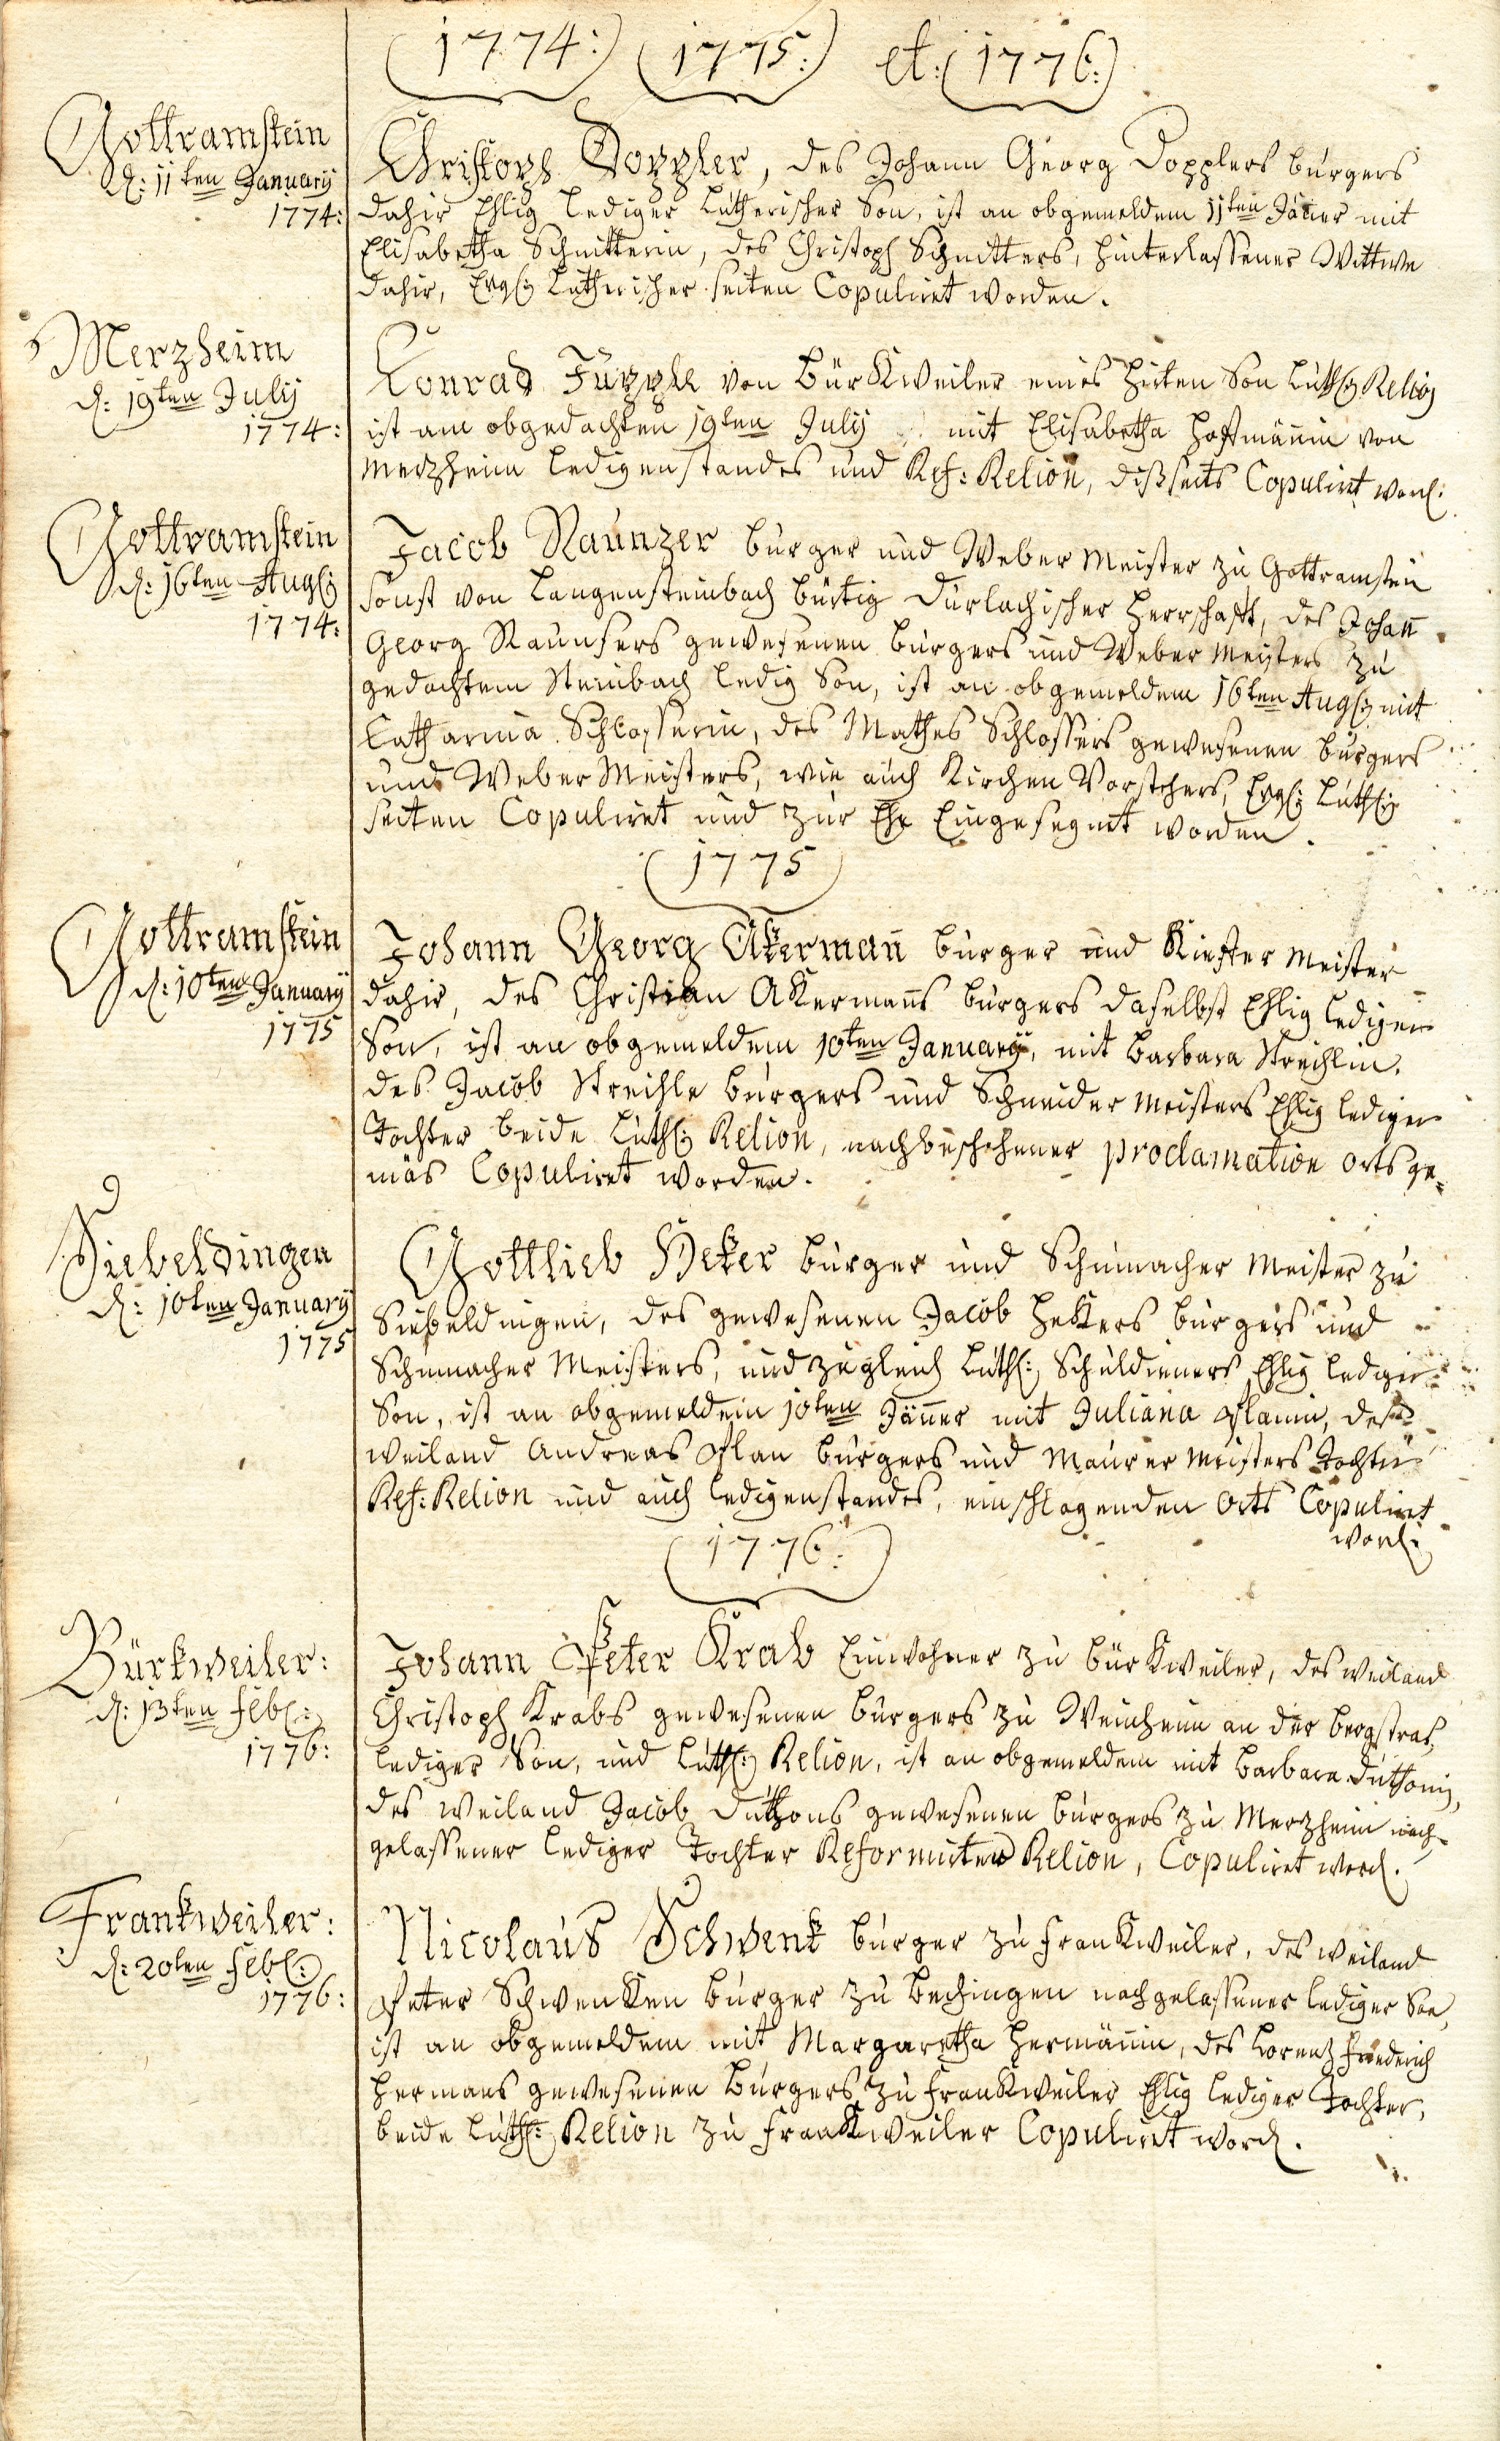 1774: 1775: et: 1776:
Gottramstein
d: 11ten January
1774:
Christoph Doppler, des Johann Georg Dopplers burgers
dahir Ehlig lediger Lutherischer Son, ist an obgemeldem 11ten Jäner mit
Elisabetha Schnitterin, des Christoph Schnitters, hinterlassener Wittwe
dahir, Evgl: Lutherischer seiten Copuliret worden.
Merzheim
d: 19ten July
1774:
Konrad Füppel von Bürkweiler eines hirten Son Luth: Relion
ist am obgedachten 19ten July mit Elisabetha Hoffmännin von
Merzheim ledigenstandes und Ref: Relion, dißseits Copulirt word:
Gottramstein
d: 16ten Aug:
1774:
Jacob Raunzer burger und Weber Meister zu Gottramstein
sonst von Langensteinbach bürtig Durlachischer Herrschafft, des Johan̄
Georg Raunsers gewesenen burgers und Weber Meisters zu
gedachtem Steinbach ledig Son, ist an obgemeldem 16ten Aug: mit
Catharina Schlosserin, des Mathes Schlossers gewesenen burgers
und Weber Meisters, wie auch Kirchen Vorstehers, Evgl: Luth:
seiten Copuliret und zur Ehe Eingesegnet worden.
1775
Gottramstein
d: 10ten January
1775
Johann Georg Akerman̄ burger und Kieffer Meister
dahir, des Christian Akerman̄s burgers daselbst Ehlig lediger
Son, ist an obgemeldem 10ten January, mit Barbara Streihlin,
des Jacob Streihle burgers und Schneider Meisters Ehlig lediger
Tochter beide Luth: Relion, nach beschehener proclamation orts ge-
mäs Copuliret worden.
Siebeldingen
d: 10ten January
1775
Gottlieb Heker burger und Schumacher Meister zu
Siebeldingen, des gewesenen Jacob Hekers burgers und
Schumacher Meisters, und zugleich Luth: Schuldieners Ehlig lediger
Son, ist an obgemeldem 10ten Jänner mit Juliana Planin, des
weiland Andreas Plan burgers und Maurer Meisters Tochter
Ref: Relion und auch ledigenstandes, einschlagenden orts Copulirt
word:
1776:
Bürkweiler:
d: 13ten Feb:
1776:
Johann Peter Krab Einwohner zu Bürkweiler, des weiland
Christoph Krabs gewesenen burgers zu Weinheim an der bergstras,
lediger Son, und Luth: Relion, ist an obgemeldem mit Barbara Duthonin,
des weiland Jacob Duthons gewesenen burgers zu Merzheim nach-
gelassener lediger Tochter Reformirter Relion, Copuliret word.
Frankweiler:
d: 20ten Feb:
1776:
Nicolaus Schwenk burger zu Frankweiler, des weiland
Peter Schwenken burger zu Bechingen nachgelassener lediger Son,
ist an obgemeldem mit Margaretha Hermännin, des Lorentz Friederich
Hermans gewesenen burgers zu Frankweiler Ehlig lediger Tochter,
beide Luth: Relion zu Frankweiler Copuliret word.